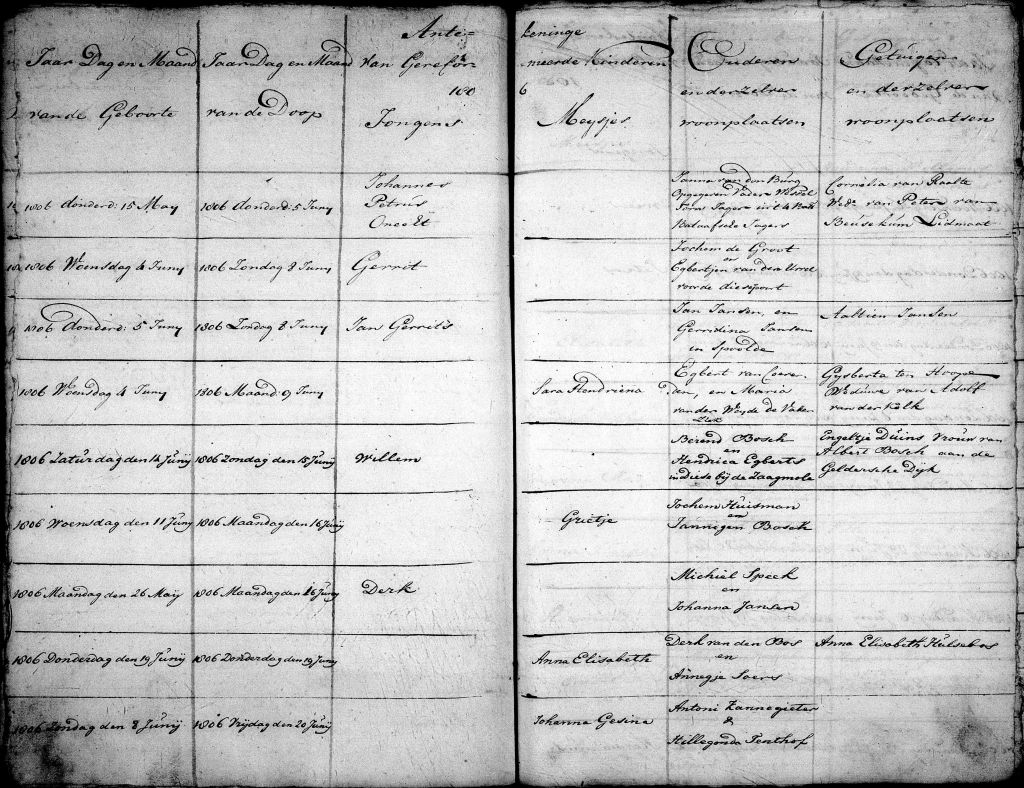 Ante=
keninge
Jaar Dag en Maand
Jaar Dag en Maand
van Gerefor
meerde Kinderen
Ouderen
Getuigen
180
6
en derzelver
en derzelver
van de Geboorte
van de Doop
Jongens
Meysjes
woonplaatsen
woonplaatsen
1806 donderd: 15 May
1806 donderd: 5 Juny
Johannes
Petrus
Onecht
Janna van den Burg
Opgegeven Vader Wessel
Jagers
Cornelia van Raalte
Wede. van Peter van
Beusekum Lidmaat
1806 Woensdag 4 Juny
1806 Zondag 8 Juny
Gerrit
Jochem de Groot
en
Egbertjen van den
voor de diesepoort
1806 donderd: 5 Juny
1806 Zondag 8 Juny
Jan Gerrits
Jan Jansen, en
Gerridina Jansen
in Spoolde
Aaltien Jansen
1806 Woensdag 4 Juny
1806 Maand: 9 Juny
Sara Hendriena
Egbert van Coever
den, en Maria
van der Weyde de Vaker
Gysberta ten Hoope
Weduwe van Adolf
van der Kolk
1806 Zaturdag den 14 Junij
1806 Zondag den 15 Junij
Willem
Berend Bosch
en
Hendrica Egberts
in diese bij de Zaagmole
Engeltje Duins Vrouw van
Albert Bosch aan de
Geldersche Dijk
1806 Woensdag den 11 Junij
1806 Maandag den 16 Junij
Grietje
Jochem Huisman
en
Jannigen Bosch
1806 Maandag den 26 Maij
1806 Maandag den 16 Junij
Derk
Michiel Speek
en
Johanna Jansen
1806 Donderdag den 19 Junij
1806 Donderdag den 19 Junij
Anna Elisabeth
Derk van den Bos
en
Annegje Soers
Anna Elisabeth Hulsebos
1806 Zondag den 8 Junij
1806 Vrijdag den 20 Junij
Johanna Gesina
Antoni Kannegieter
&
Hillegonda Tenthof